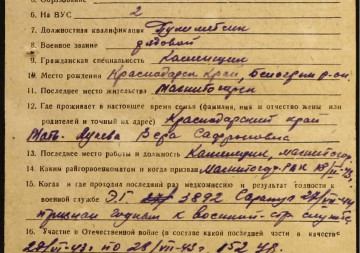 6. Образование
6. На ВУС 2
7. Должностная квалификация Пулеметчик
8. Военное звание рядовой
9. Гражданская специальность Каменщик
10. Место рождения Краснодарск. Край, р-он
11. Последнее место жительства Магнитогорск
12. Где проживает в настоящее время семья (фамилия, имя и отчество жены или
родителей и точный их адрес) Краснодарский край
Мать Вера Сафроновна
13. Последнее место работы и должность Каменщик, Магнитогор
14. Каким райгорвоенкоматом и когда призван Магнитогор. РВК
15. Когда и где проходил последний раз медкомиссию и результат годности к
военной службе ЭГ 3892 Сарапул
признан годным к военной службе
16. Участие в Отечественной войне (в составе какой последней части и качестве)
по 28/VII-43г. 152 УР.